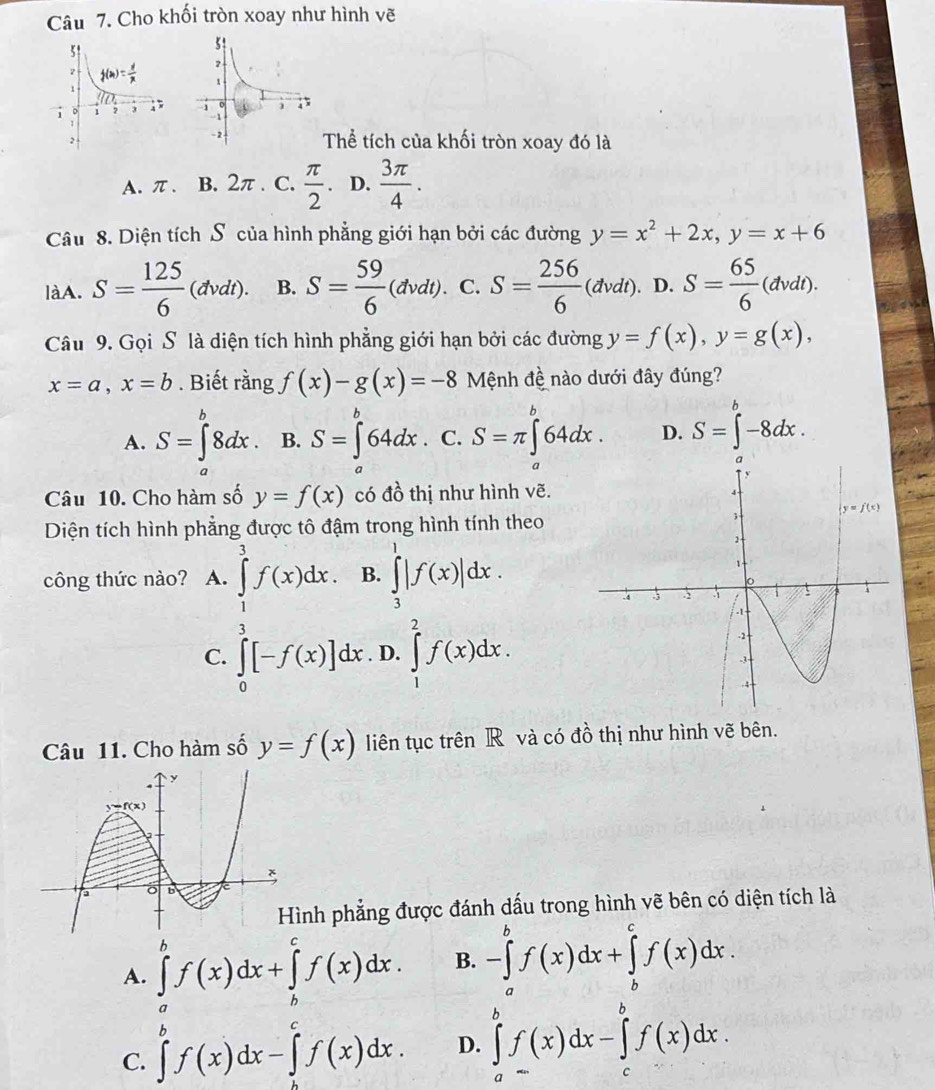 Câu 7. Cho khối tròn xoay như hình vẽ
f(x) = 1/x
Thể tích của khối tròn xoay đó là
A. π . B. 2π . C. π/2 . D. 3π/4 .
Câu 8. Diện tích S của hình phẳng giới hạn bởi các đường y = x² + 2x, y = x + 6
làA. S = 125/6 (đvdt). B. S = 59/6 (đvdt). C. S = 256/6 (đvdt). D. S = 65/6 (đvdt).
Câu 9. Gọi S là diện tích hình phẳng giới hạn bởi các đường y = f(x), y = g(x),
x = a, x = b . Biết rằng f(x) − g(x) = −8 Mệnh đề nào dưới đây đúng?
A. S = ∫_a^b 8dx . B. S = ∫_a^b 64dx . C. S = π∫_a^b 64dx . D. S = ∫_a^b −8dx .
Câu 10. Cho hàm số y = f(x) có đồ thị như hình vẽ.
y = f(x)
Diện tích hình phẳng được tô đậm trong hình tính theo
công thức nào? A. ∫_1^3 f(x)dx . B. ∫_3^1 |f(x)|dx .
C. ∫_0^3 [−f(x)]dx . D. ∫_1^2 f(x)dx .
Câu 11. Cho hàm số y = f(x) liên tục trên ℝ và có đồ thị như hình vẽ bên.
y
y=f(x)
x
a O b c
Hình phẳng được đánh dấu trong hình vẽ bên có diện tích là
A. ∫_a^b f(x)dx + ∫_b^c f(x)dx . B. −∫_a^b f(x)dx + ∫_b^c f(x)dx .
C. ∫_a^b f(x)dx − ∫_b^c f(x)dx . D. ∫_a^b f(x)dx − ∫_c^b f(x)dx .